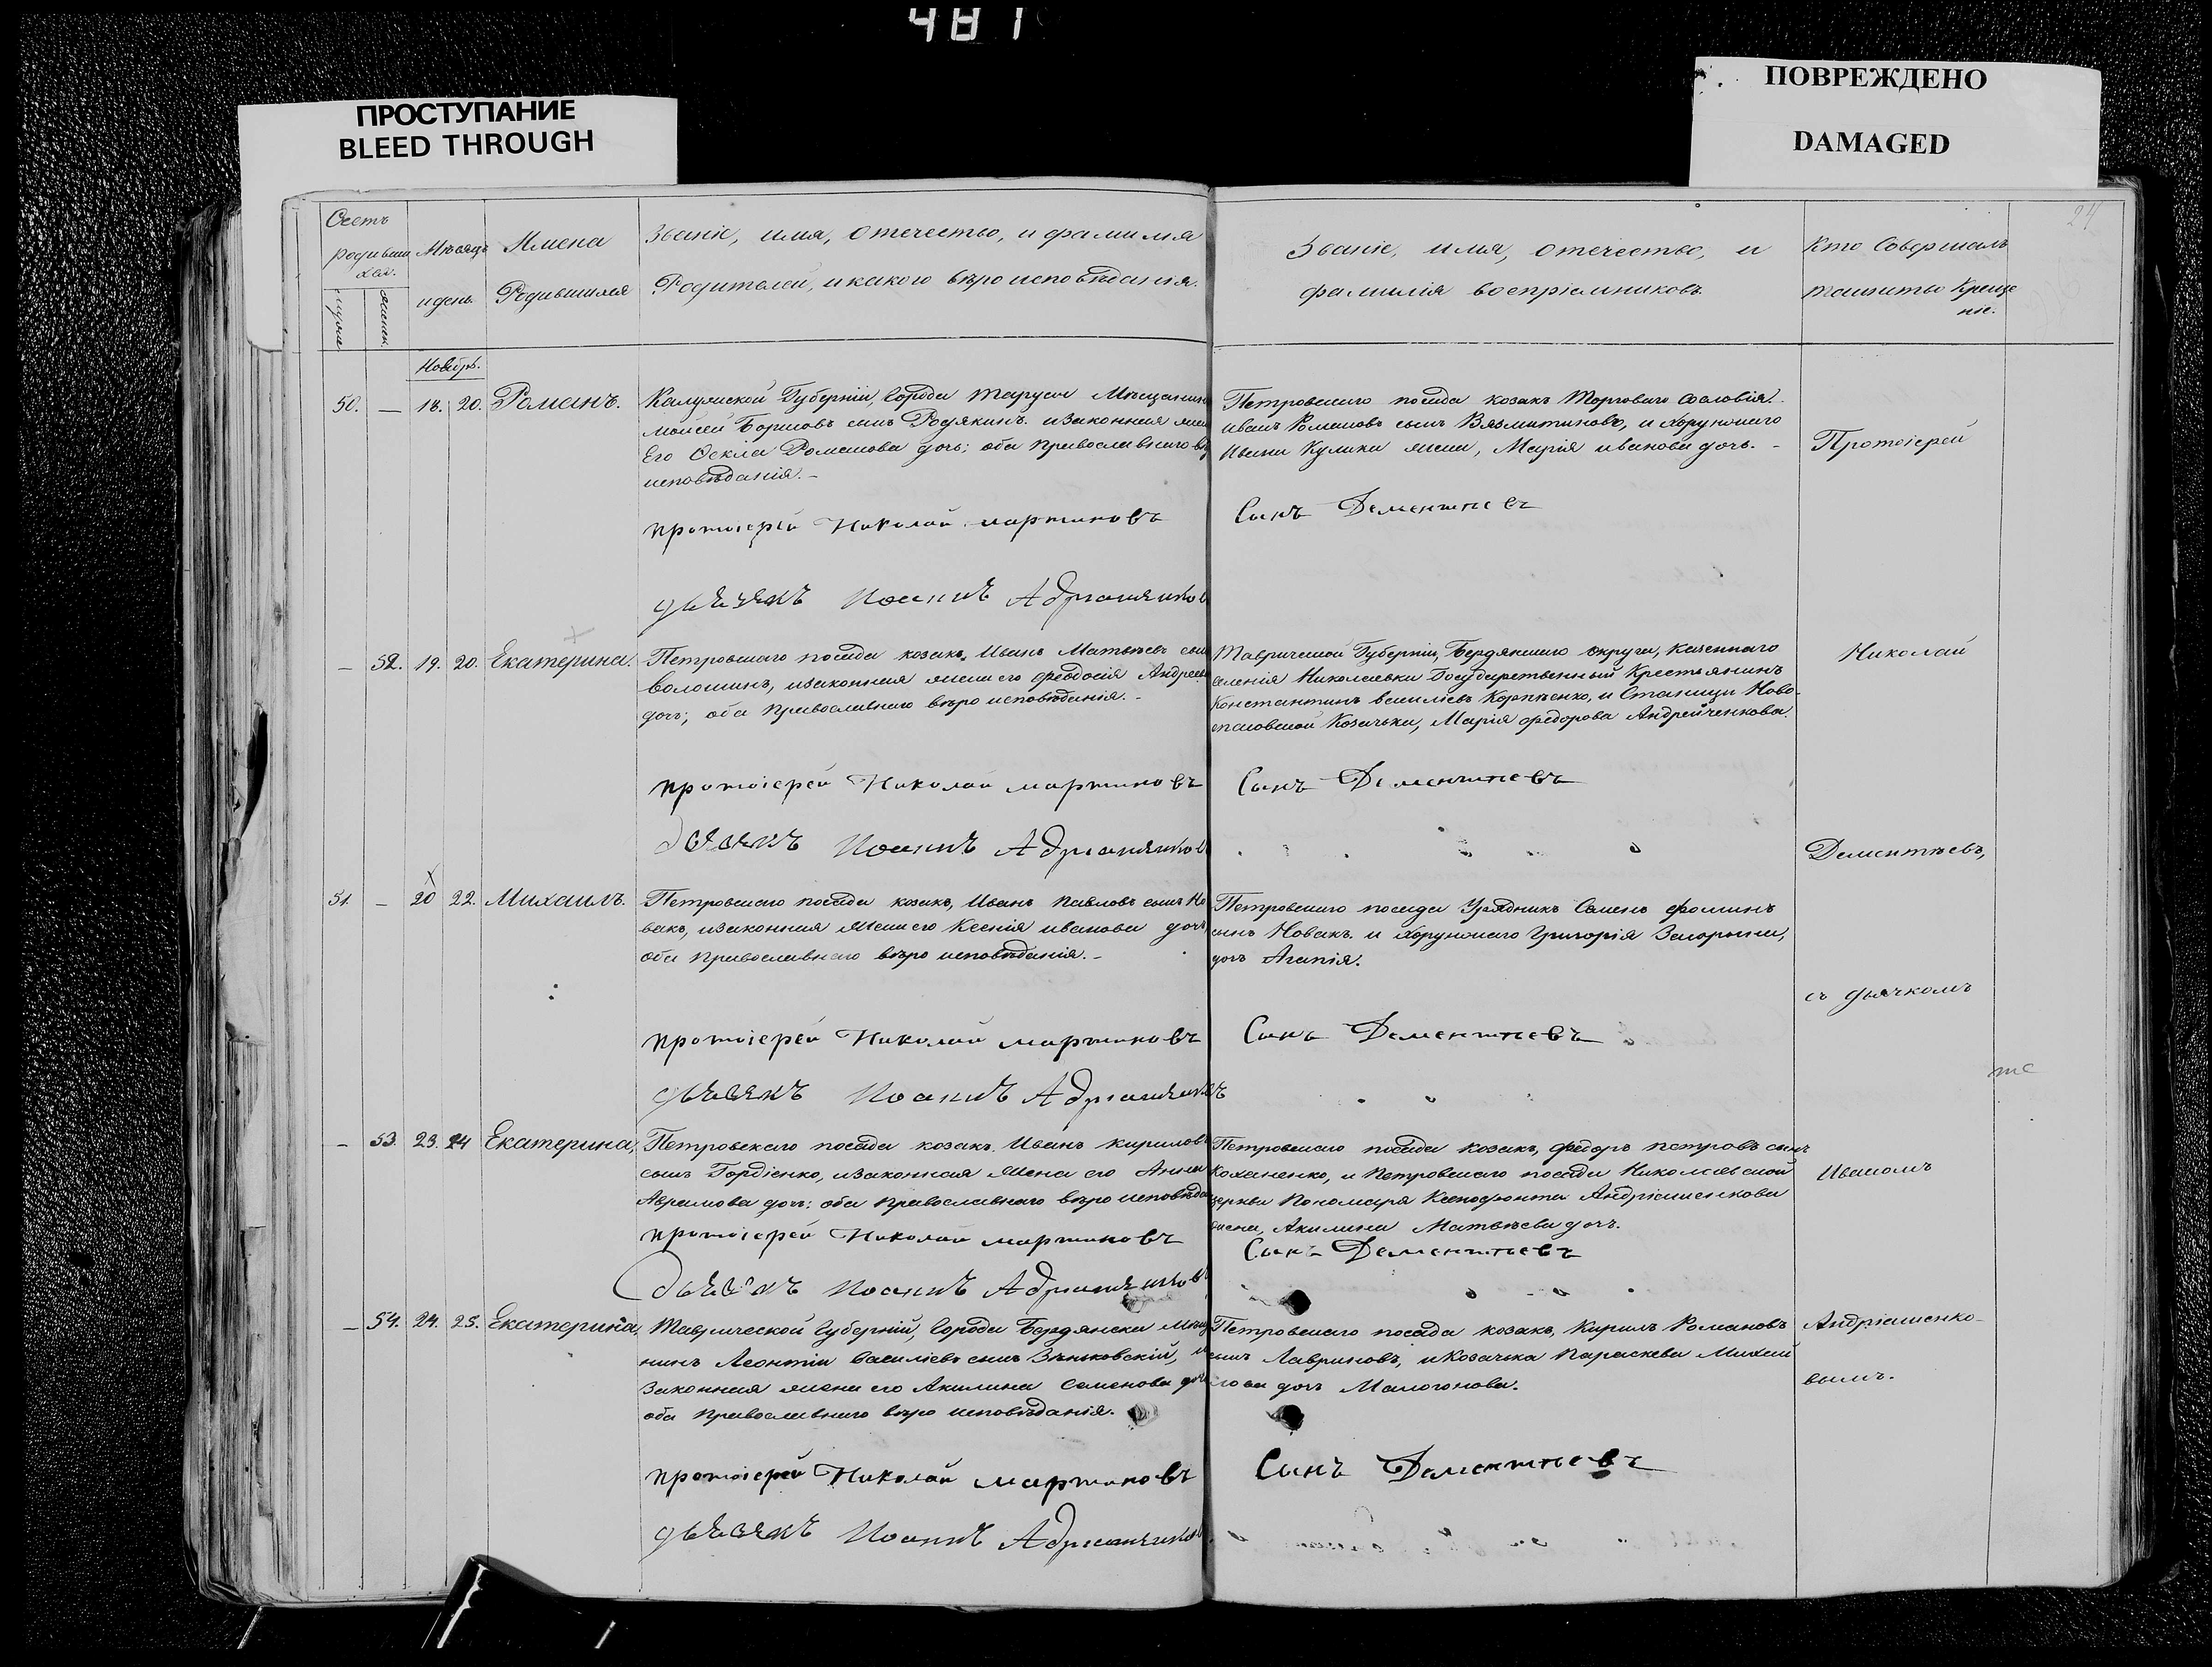 481
ПРОСТУПАНИЕ
BLEED THROUGH
ПОВРЕЖДЕНО
DAMAGED
24
Счетъ
родивши
хся.
муже
женск.
Мѣсяцъ
и день
Имена
Родившихся
Званіе, имя, отечество, и фамилія
Родителей, и какого вѣро исповѣданія.
Званіе, имя, отечество, и
фамилія воспріемниковъ.
Кто Совершалъ
таинство Креще
ніе.
Ноябрь.
50. — 18. 20. Романъ.
Калужской Губерніи, города Таруси Мѣщанинъ
Моисей Борисовъ сынъ Родякинъ и законная жена
Его Фекла Романова дочь; оба Православнаго вѣ
исповѣданія. —
Петровскаго посада козакъ Торговаго Сословія
Иванъ Романовъ сынъ Вязмитиновъ, и Хорунжаго
Ивана Кулика жена, Марія Иванова дочь. —
Протоіерей
протоіерей Николай мартиновъ
Сынъ Дементьевъ
дьячекъ Иоаннъ Адріашенков
— 52. 19. 20. Екатерина.
Петровскаго посада козакъ, Иванъ Матвѣевъ сын
Волошинъ, и законная жена его Феодосія Андреева
дочь; оба Православнаго вѣро исповѣданія. —
Таврической Губерніи, Бердянскаго округа, Казеннаго
селенія Николаевки Государственный Крестьянинъ
Константинъ Василіевъ Корпѣенко, и Станицы Ново-
спасовской Козачька, Марія Федорова Андрейченкова.
Николай
протоіерей Николай мартиновъ
Сынъ Дементьевъ
дьячекъ Иоаннъ Адріашенков
Дементьевъ,
51. — 20 22. Михаилъ.
Петровскаго посада козакъ, Иванъ Павловъ сынъ Но
вакъ, и законная жена его Ксенія Иванова дочь
оба Православнаго вѣро исповѣданія. —
Петровскаго посада Урядникъ Семенъ Фоминъ
сынъ Новакъ и Хорунжаго Григорія
дочь Агапія.
съ дьячкомъ
протоіерей Николай мартиновъ
Сынъ Дементьевъ
дьячекъ Иоаннъ Адріашенковъ
— 53. 23. 24 Екатерина,
Петровскаго посада козакъ Иванъ Кириловъ
сынъ Гордіенко, и законная жена его Анна
Аврамова дочь; оба Православнаго вѣро исповѣда
Петровскаго посада козакъ, Федоръ Петровъ сынъ
Коханенко, и Петровскаго посада Николаевской
церкви Пономаря Ксенофонта Андріашенкова
жена, Акилина Матвѣева дочь.
Иваномъ
протоіерей Николай мартиновъ
Сынъ Дементьевъ
дьячекъ Иоаннъ Адріашенковъ
— 54. 24. 25. Екатерина,
Таврической Губерніи, города Бердянска Мѣща
нинъ Леонтіи Василіевъ сынъ Зѣньковскій, и
Законная жена его Акилина Семенова дочь
оба Православнаго вѣро исповѣданія.
Петровскаго посада козакъ, Кирилъ Романовъ
сынъ Лавриновъ, и Козачька Параскева Михаи
лова дочь
Андріашенко-
вымъ.
протоіерей Николай мартиновъ
Сынъ Дементьевъ
дьячекъ Иоаннъ Адріашенков